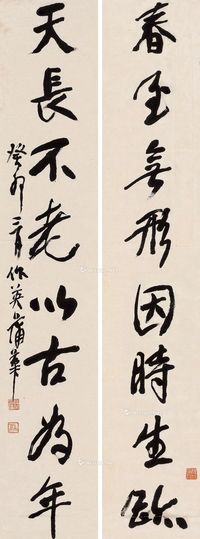 春至無形因時生跡
天長不老以古為年
癸卯三月作英蒲華